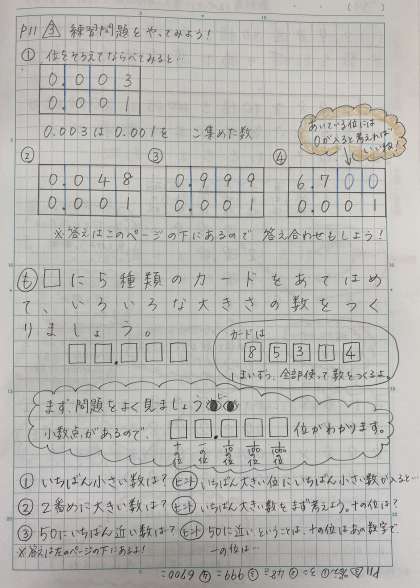 P11 ③ 練習問題をやってみよう!
① 位をそろえてならべてみると…
0.003
0.001
0.003は0.001を こ集めた数
あいている位には
0が入ると考えれば
いいね!
② ③ ④
0.048 0.999 6.700
0.001 0.001 0.001
※答えはこのページの下にあるので 答え合わせもしよう!
も □に5種類のカードをあてはめ
て、いろいろな大きさの数をつく
りましょう。
□□.□□□
カードは
8 5 3 1 4
1まいずつ、全部使って数をつくるよ。
まず、問題をよく見ましょう
小数点があるので、□□.□□□ 位がわかります。
十の位 一の位 1/10の位 1/100の位 1/1000の位
① いちばん小さい数は? ヒント いちばん大きい位にいちばん小さい数が入ると…
② 2番めに大きい数は? ヒント いちばん大きい数をまず考えよう。十の位は?
③ 50にいちばん近い数は? ヒント 50に近いということは、十の位はあの数字で、
一の位は…
※答えは左のページの下にあるよ!
①3こ ②48こ ③999こ ④6700こ